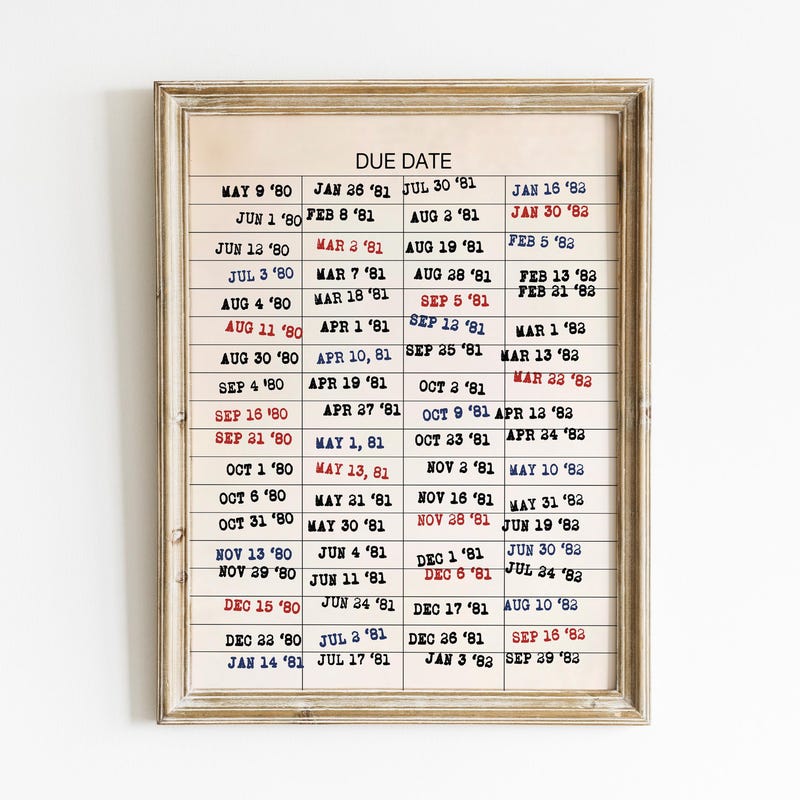 DUE DATE
MAY 9 '80
JUN 1 '80
JUN 12 '80
JUL 3 '80
AUG 4 '80
AUG 11 '80
AUG 30 '80
SEP 4 '80
SEP 16 '80
SEP 21 '80
OCT 1 '80
OCT 6 '80
OCT 31 '80
NOV 13 '80
NOV 29 '80
DEC 15 '80
DEC 22 '80
JAN 14 '81
JAN 26 '81
FEB 8 '81
MAR 2 '81
MAR 7 '81
MAR 18 '81
APR 1 '81
APR 10, 81
APR 19 '81
APR 27 '81
MAY 1, 81
MAY 13, 81
MAY 21 '81
MAY 30 '81
JUN 4 '81
JUN 11 '81
JUN 24 '81
JUL 2 '81
JUL 17 '81
JUL 30 '81
AUG 2 '81
AUG 19 '81
AUG 28 '81
SEP 5 '81
SEP 12 '81
SEP 25 '81
OCT 2 '81
OCT 9 '81
OCT 23 '81
NOV 2 '81
NOV 16 '81
NOV 28 '81
DEC 1 '81
DEC 6 '81
DEC 17 '81
DEC 26 '81
JAN 3 '82
JAN 16 '82
JAN 30 '82
FEB 5 '82
FEB 13 '82
FEB 21 '82
MAR 1 '82
MAR 13 '82
MAR 22 '82
APR 12 '82
APR 24 '82
MAY 10 '82
MAY 31 '82
JUN 19 '82
JUN 30 '82
JUL 24 '82
AUG 10 '82
SEP 16 '82
SEP 29 '82